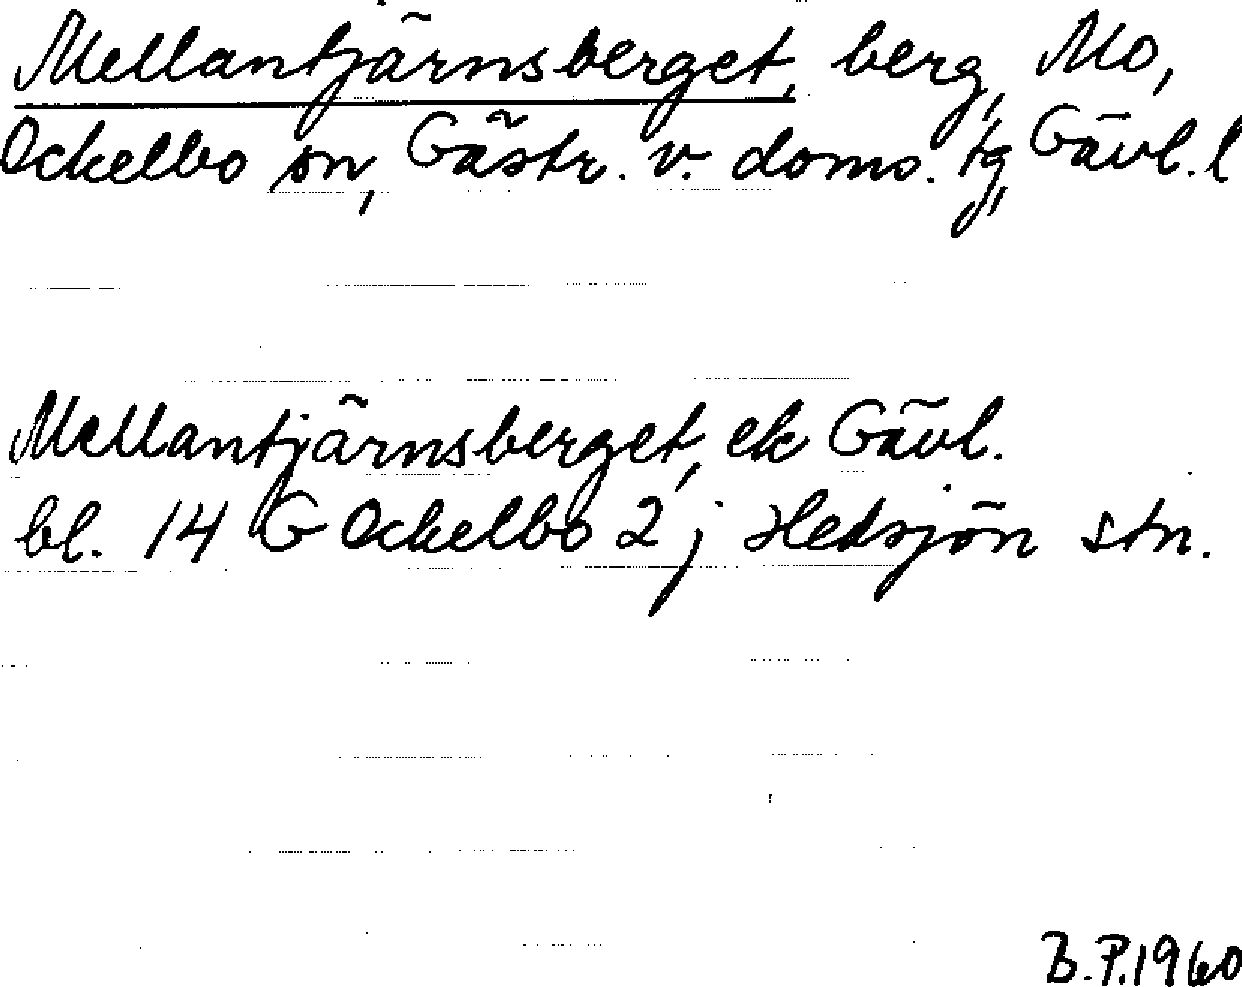 Mellantjärnsberget, berg, Mo,
Ockelbo sn, Gästr. v. doms. tg, Gävl. l
Mellantjärnsberget, ek Gävl.
bl. 14 G Ockelbo 2 j Hedsjön stn.
B.P. 1960